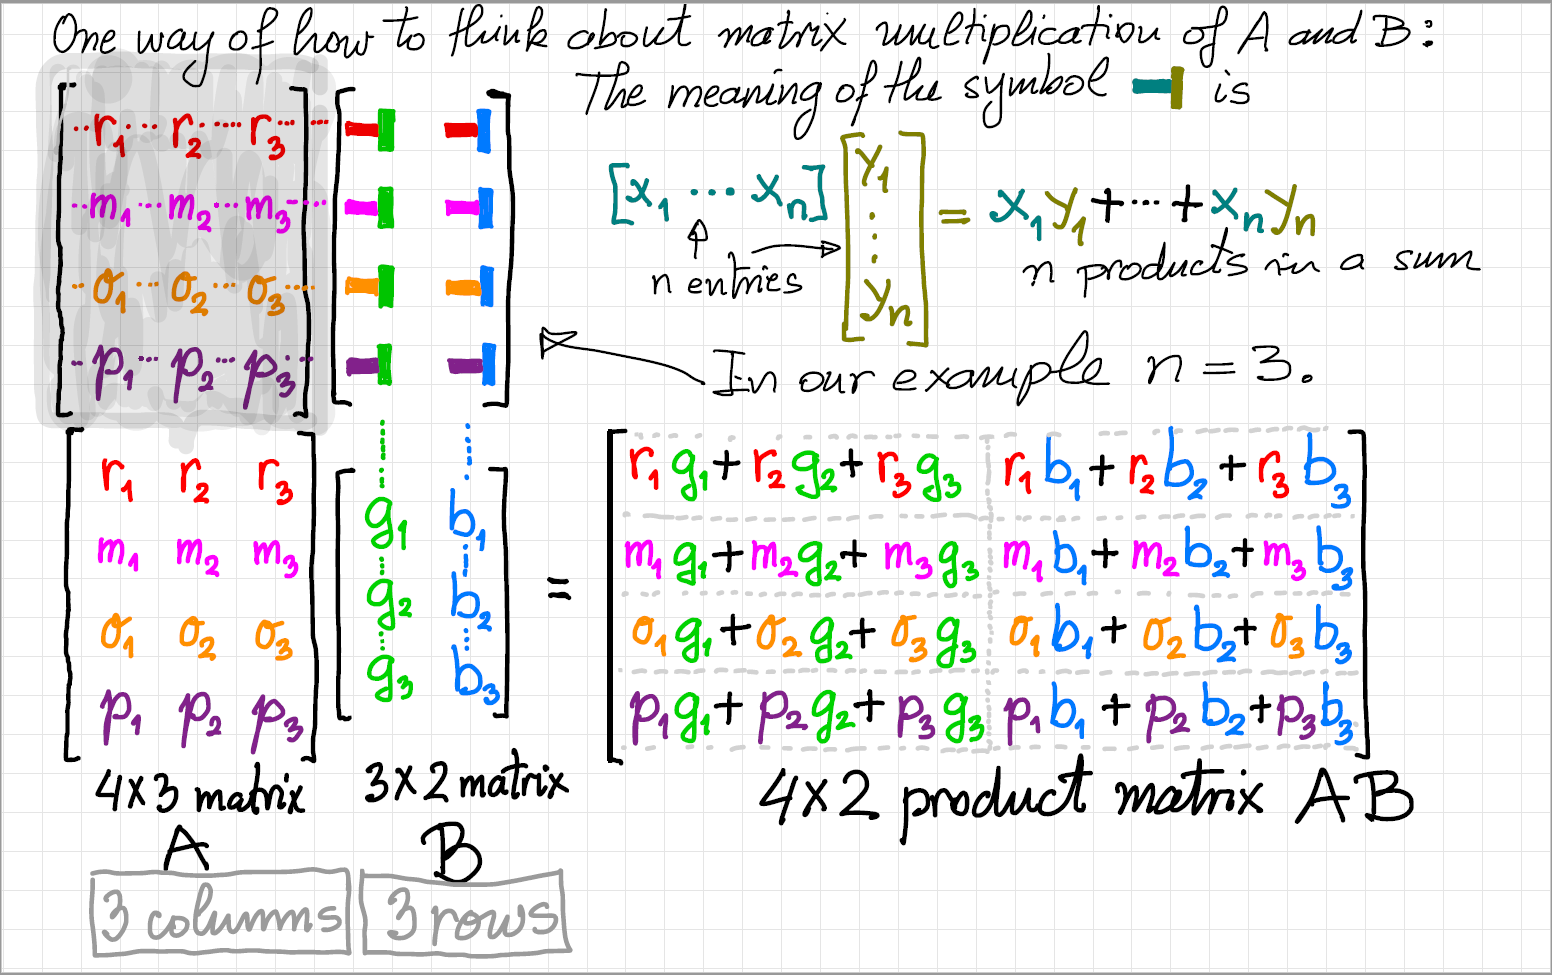 One way of how to think about matrix multiplication of A and B:
The meaning of the symbol is
r₁ r₂ r₃
m₁ m₂ m₃
o₁ o₂ o₃
p₁ p₂ p₃
[x₁ ⋯ xₙ] [y₁ ⋮ yₙ] = x₁y₁+⋯+xₙyₙ
n entries
n products in a sum
In our example n = 3.
r₁ r₂ r₃
m₁ m₂ m₃
o₁ o₂ o₃
p₁ p₂ p₃
g₁ b₁
g₂ b₂
g₃ b₃
=
r₁g₁+r₂g₂+r₃g₃ r₁b₁+r₂b₂+r₃b₃
m₁g₁+m₂g₂+m₃g₃ m₁b₁+m₂b₂+m₃b₃
o₁g₁+o₂g₂+o₃g₃ o₁b₁+o₂b₂+o₃b₃
p₁g₁+p₂g₂+p₃g₃ p₁b₁+p₂b₂+p₃b₃
4×3 matrix
A
3×2 matrix
B
4×2 product matrix AB
3 columns
3 rows